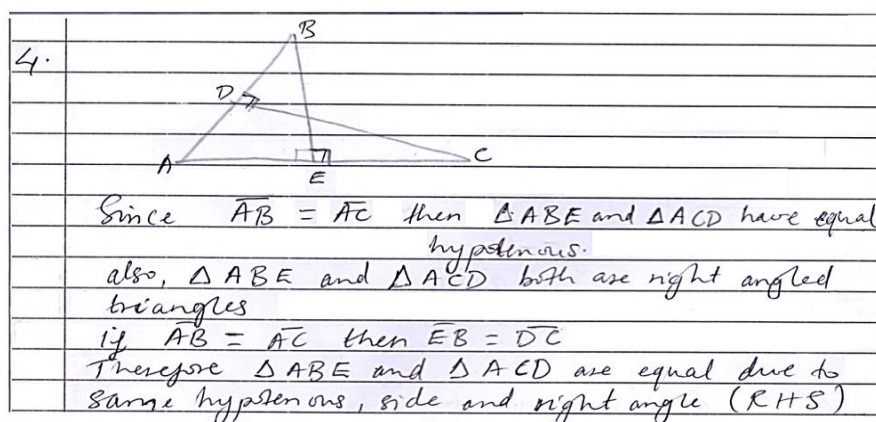 4.
B
D
A
E
C
Since AB = AC then △ABE and △ACD have equal
hypotenous.
also, △ ABE and △ ACD both are right angled
triangles
if AB = AC then EB = DC
Therefore △ ABE and △ ACD are equal due to
same hypotenous, side and right angle (RHS)